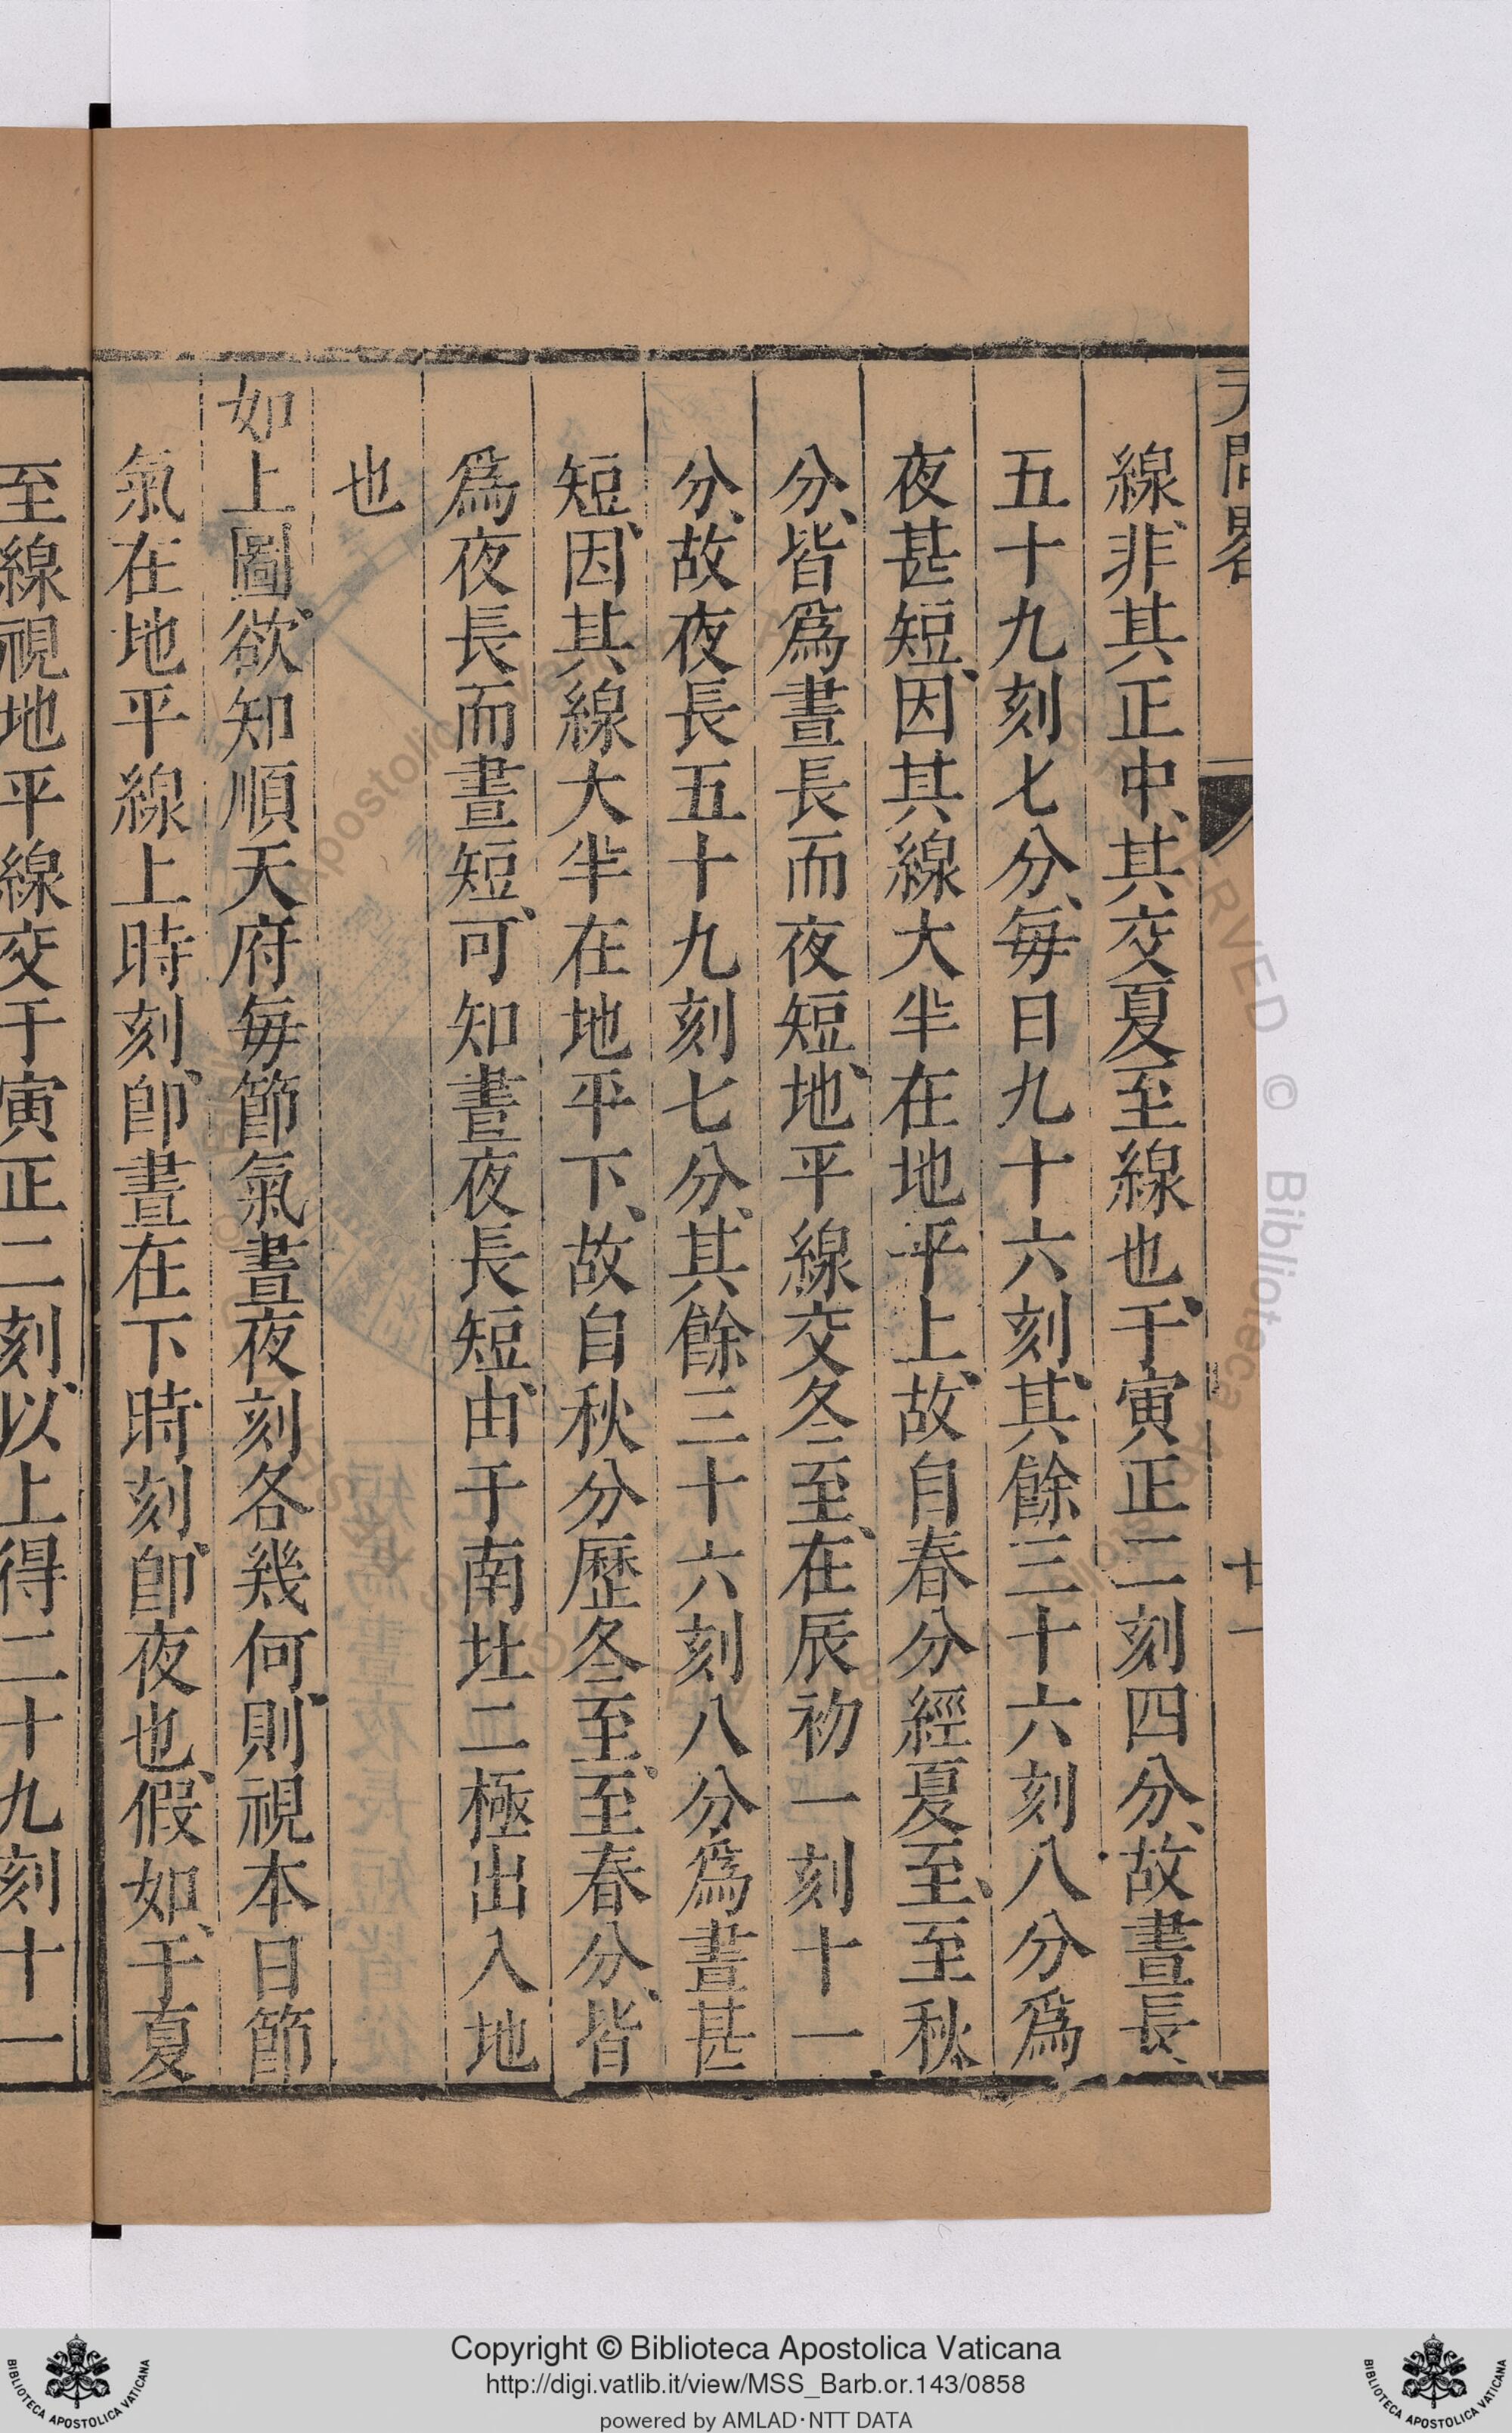 天問畧
廿一
線、非其正中、其交夏至線也、于寅正二刻四分、故晝長、
五十九刻七分、每日九十六刻、其餘三十六刻八分爲
夜甚短、因其線大半在地平上、故自春分經夏至、至秋
分、皆爲晝長而夜短、地平線交冬至、在辰初一刻十一
分、故夜長五十九刻七分、其餘三十六刻八分爲晝甚
短、因其線大半在地平下、故自秋分歷冬至、至春分、皆
爲夜長而晝短、可知晝夜長短、由于南北二極出入地
也
如上圖、欲知順天府每節氣晝夜刻各幾何、則視本日節
氣在地平線上時刻、卽晝在下時刻、卽夜也、假如、于夏
至線視地平線交于寅正二刻、以上得二十九刻十一
Copyright © Biblioteca Apostolica Vaticana
http://digi.vatlib.it/view/MSS_Barb.or.143/0858
powered by AMLAD·NTT DATA
BIBLIOTECA APOSTOLICA VATICANA
BIBLIOTECA APOSTOLICA VATICANA